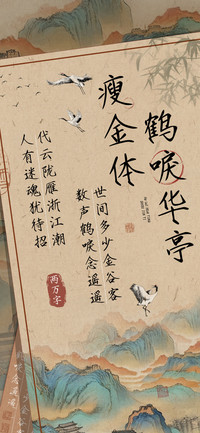 鹤唳华亭
瘦金体
世间多少金谷客
数声鹤唳念遥遥
代云陇雁浙江潮
人有迷魂犹待招
两万字